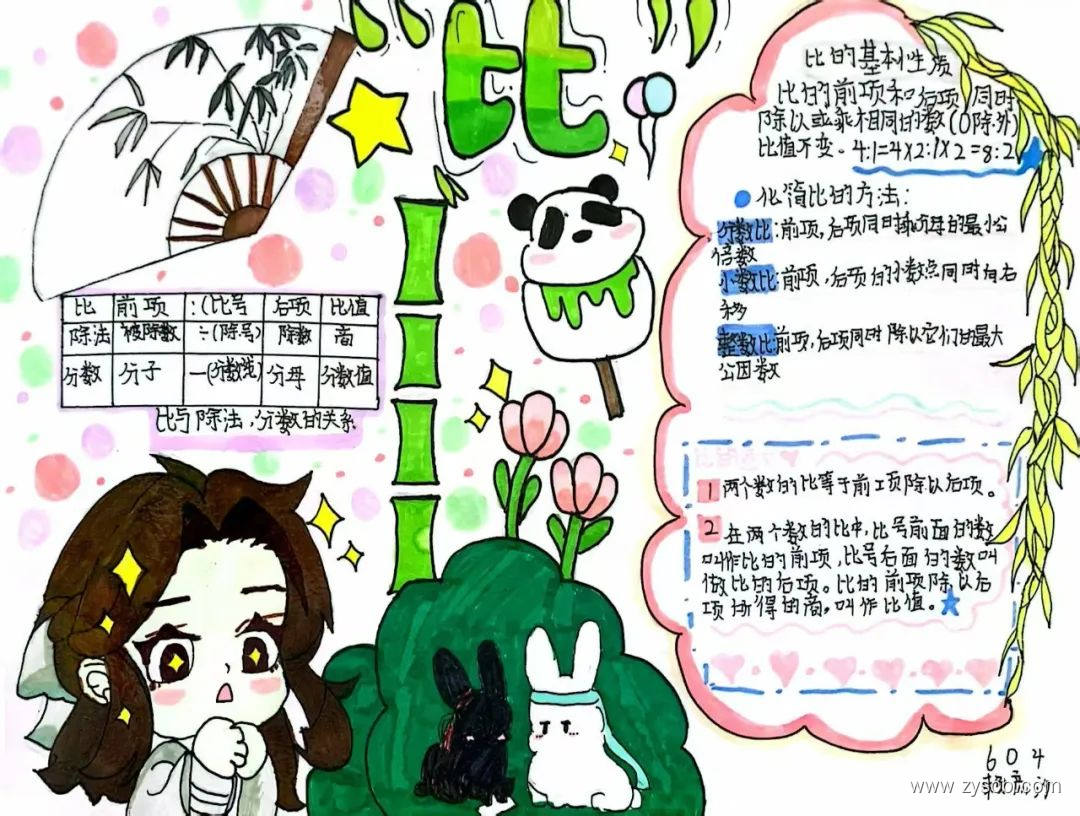 比
比的基本性质
比的前项和后项同时
除以或乘相同的数(0除外)
比值不变。4:1=4×2:1×2=8:2
化简比的方法:
分数比:前项,后项同时乘分母的最小公
倍数
小数比:前项,后项的小数点同时向右
移
整数比前项,后项同时除以它们的最大
公因数
比 前项 :(比号 后项 比值
除法 被除数 ÷(除号) 除数 商
分数 分子 —(分数线) 分母 分数值
比与除法,分数的关系
1 两个数的比等于前项除以后项。
2 在两个数的比中,比号前面的数
叫作比的前项,比号右面的数叫
做比的后项。比的前项除以后
项所得的商,叫作比值。
604